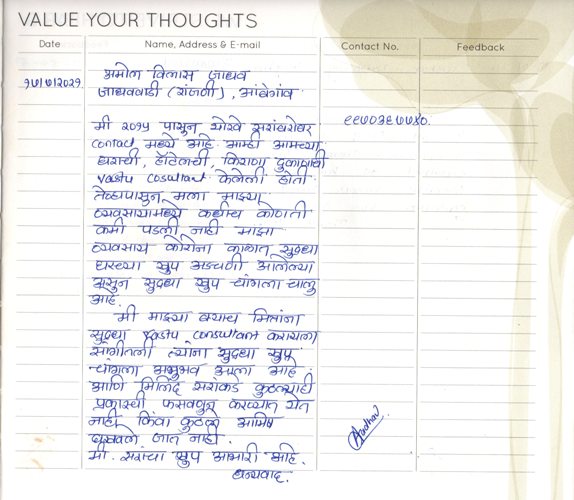 VALUE YOUR THOUGHTS
Date Name, Address & E-mail Contact No. Feedback
अमोल विलास जाधव
जाधववाडी (रांजणी), आंबेगांव
मी २०१५ पासुन मोरवे सरांबरोबर
contact मध्ये आहे. आम्ही आमच्या
घराची, हॉटेलची, किराणा दुकानाची
vastu cosultant केलेली होती
तेव्हापासुन मला माझ्या
व्यवसायामध्ये कधीच कोणती
कमी पडली नाही माझा
व्यवसाय कोरोना काळात सुध्दा
घरच्या खुप अडचणी आलेल्या
असुन सुध्दा खुप चांगला चालु
आहे.
मी माझ्या बऱ्याच मित्रांना
सुध्दा vastu consultant करायला
सांगीतली त्यांना सुध्दा खुप
चांगला अनुभव आला आहे.
आणि मिलिंद सरांकडे कुठल्याही
प्रकारची फसवणुन करण्यात येत
नाही किंवा कुठले आमिष
दाखवले जात नाही.
मी. सरांचा खुप आभारी आहे.
धन्यवाद.
Jadhav